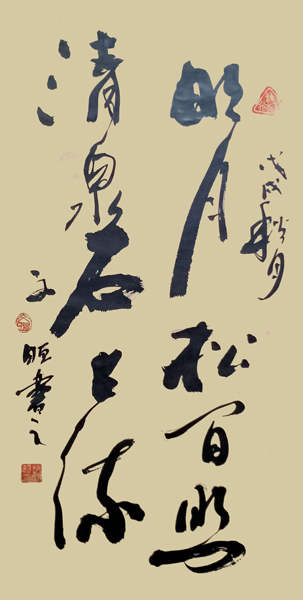 戊戌秋月
明月松间照
清泉石上流
書之